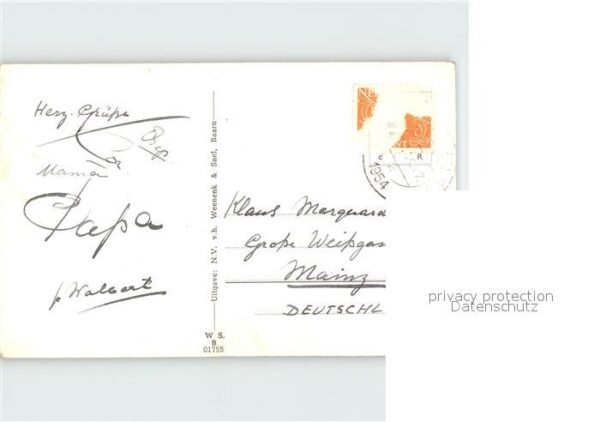 Herz. Grüße
Mama
Papa
Walbert
Uitgave: N.V. v.h. Weenenk & Snel, Baarn
W S.
B
01755
1954
R
Klaus Marquard
Große Weißgas
Mainz
DEUTSCHL
privacy protection
Datenschutz